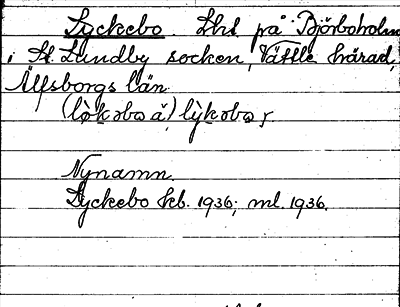 Lyckebo. Lht på Björboholm
i St. Lundby socken, Vättle härad,
Älfsborgs län.
(lỳkəbo ǎ) lỳkəbo,
Nynamn.
Lyckebo kb. 1936; ml. 1936.